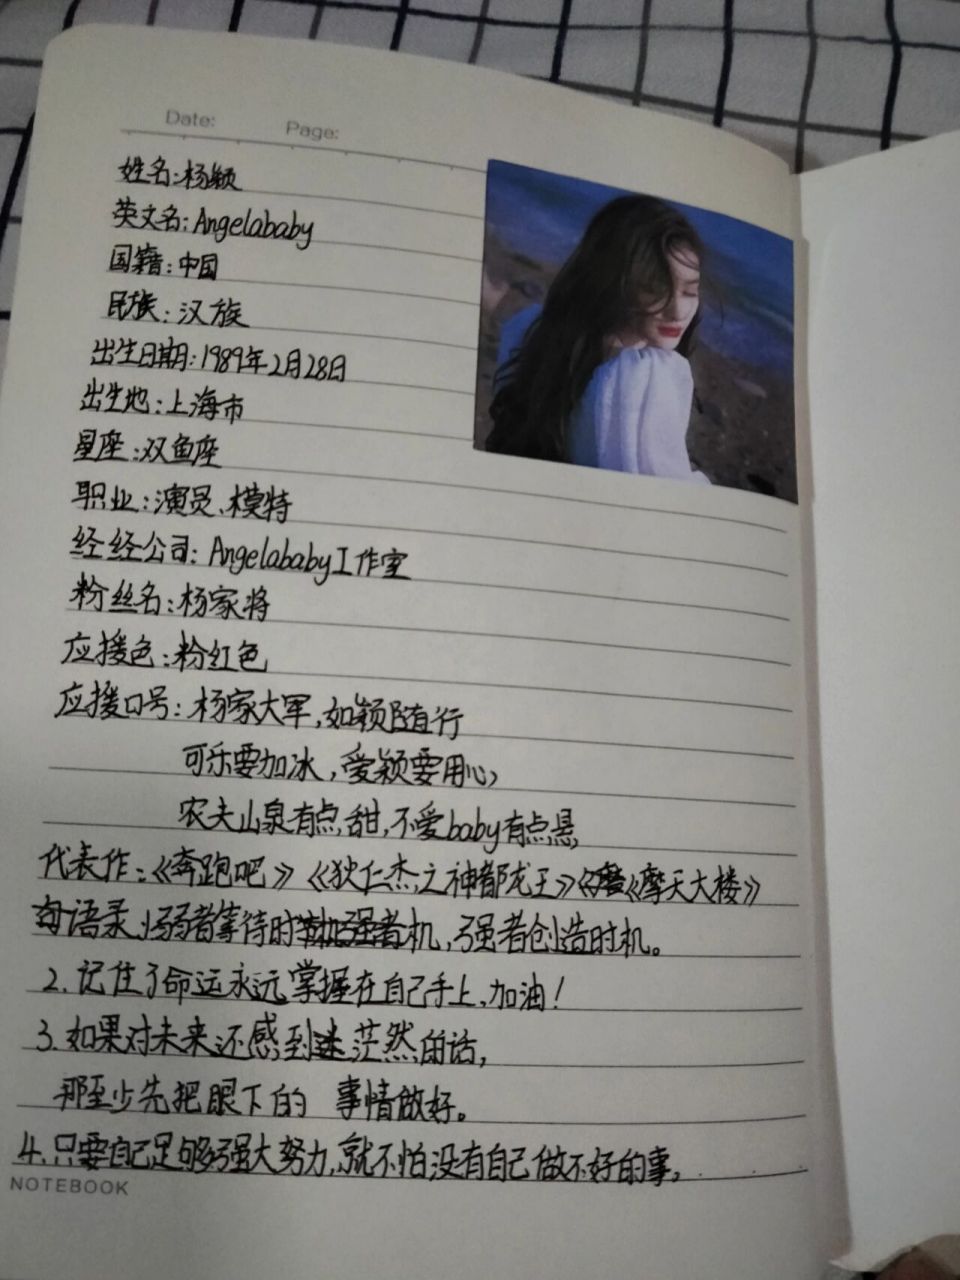 Date: Page:
姓名:杨颖
英文名:Angelababy
国籍:中国
民族:汉族
出生日期:1989年2月28日
出生地:上海市
星座:双鱼座
职业:演员、模特
经经公司:Angelababy工作室
粉丝名:杨家将
应援色:粉红色
应援口号:杨家大军,如颖随行
可乐要加冰,爱颖要用心,
农夫山泉有点甜,不爱baby有点悬,
代表作:《奔跑吧》《狄仁杰之神都龙王》《摩天大楼》
语录 1.弱者等待时机,强者创造时机。
2.记住了命运永远掌握在自己手上,加油!
3.如果对未来还感到茫然的话,
那至少先把眼下的 事情做好。
4.只要自己足够强大努力,就不怕没有自己做不好的事,
NOTEBOOK